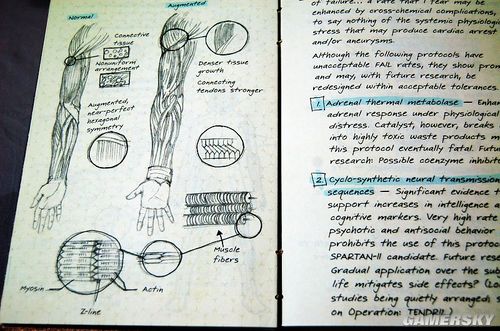 Normal
Augmented
Connective
tissue
Nonuniform
arrangement
Augmented,
near-perfect
hexagonal
symmetry
Denser tissue
growth
Connecting
tendons stronger
Muscle
fibers
Myosin
Actin
Z-line
of failure... a rate that I fear may be
enhanced by cross-chemical complications,
to say nothing of the systemic physiologi
stress that may produce cardiac arrest
and/or aneurysms.
Although the following protocols have
unacceptable FAIL rates, they show pron
and may, with future research, be
redesigned within acceptable tolerances
1. Adrenal thermal metabolase — Enha
adrenal response under physiological
distress. Catalyst, however, breaks
into highly toxic waste products m
this protocol eventually fatal. Futu
research: Possible coenzyme inhibit
2. Cyclo-synthetic neural transmission
sequences — Significant evidence t
support increases in intelligence a
cognitive markers. Very high rate
psychotic and antisocial behavior
prohibits the use of this protoc
SPARTAN-II candidate. Future rese
Gradual application over the su
life mitigates side effects? (Lo
studies being quietly arranged, s
on Operation: TENDRIL)
GAMERSKY